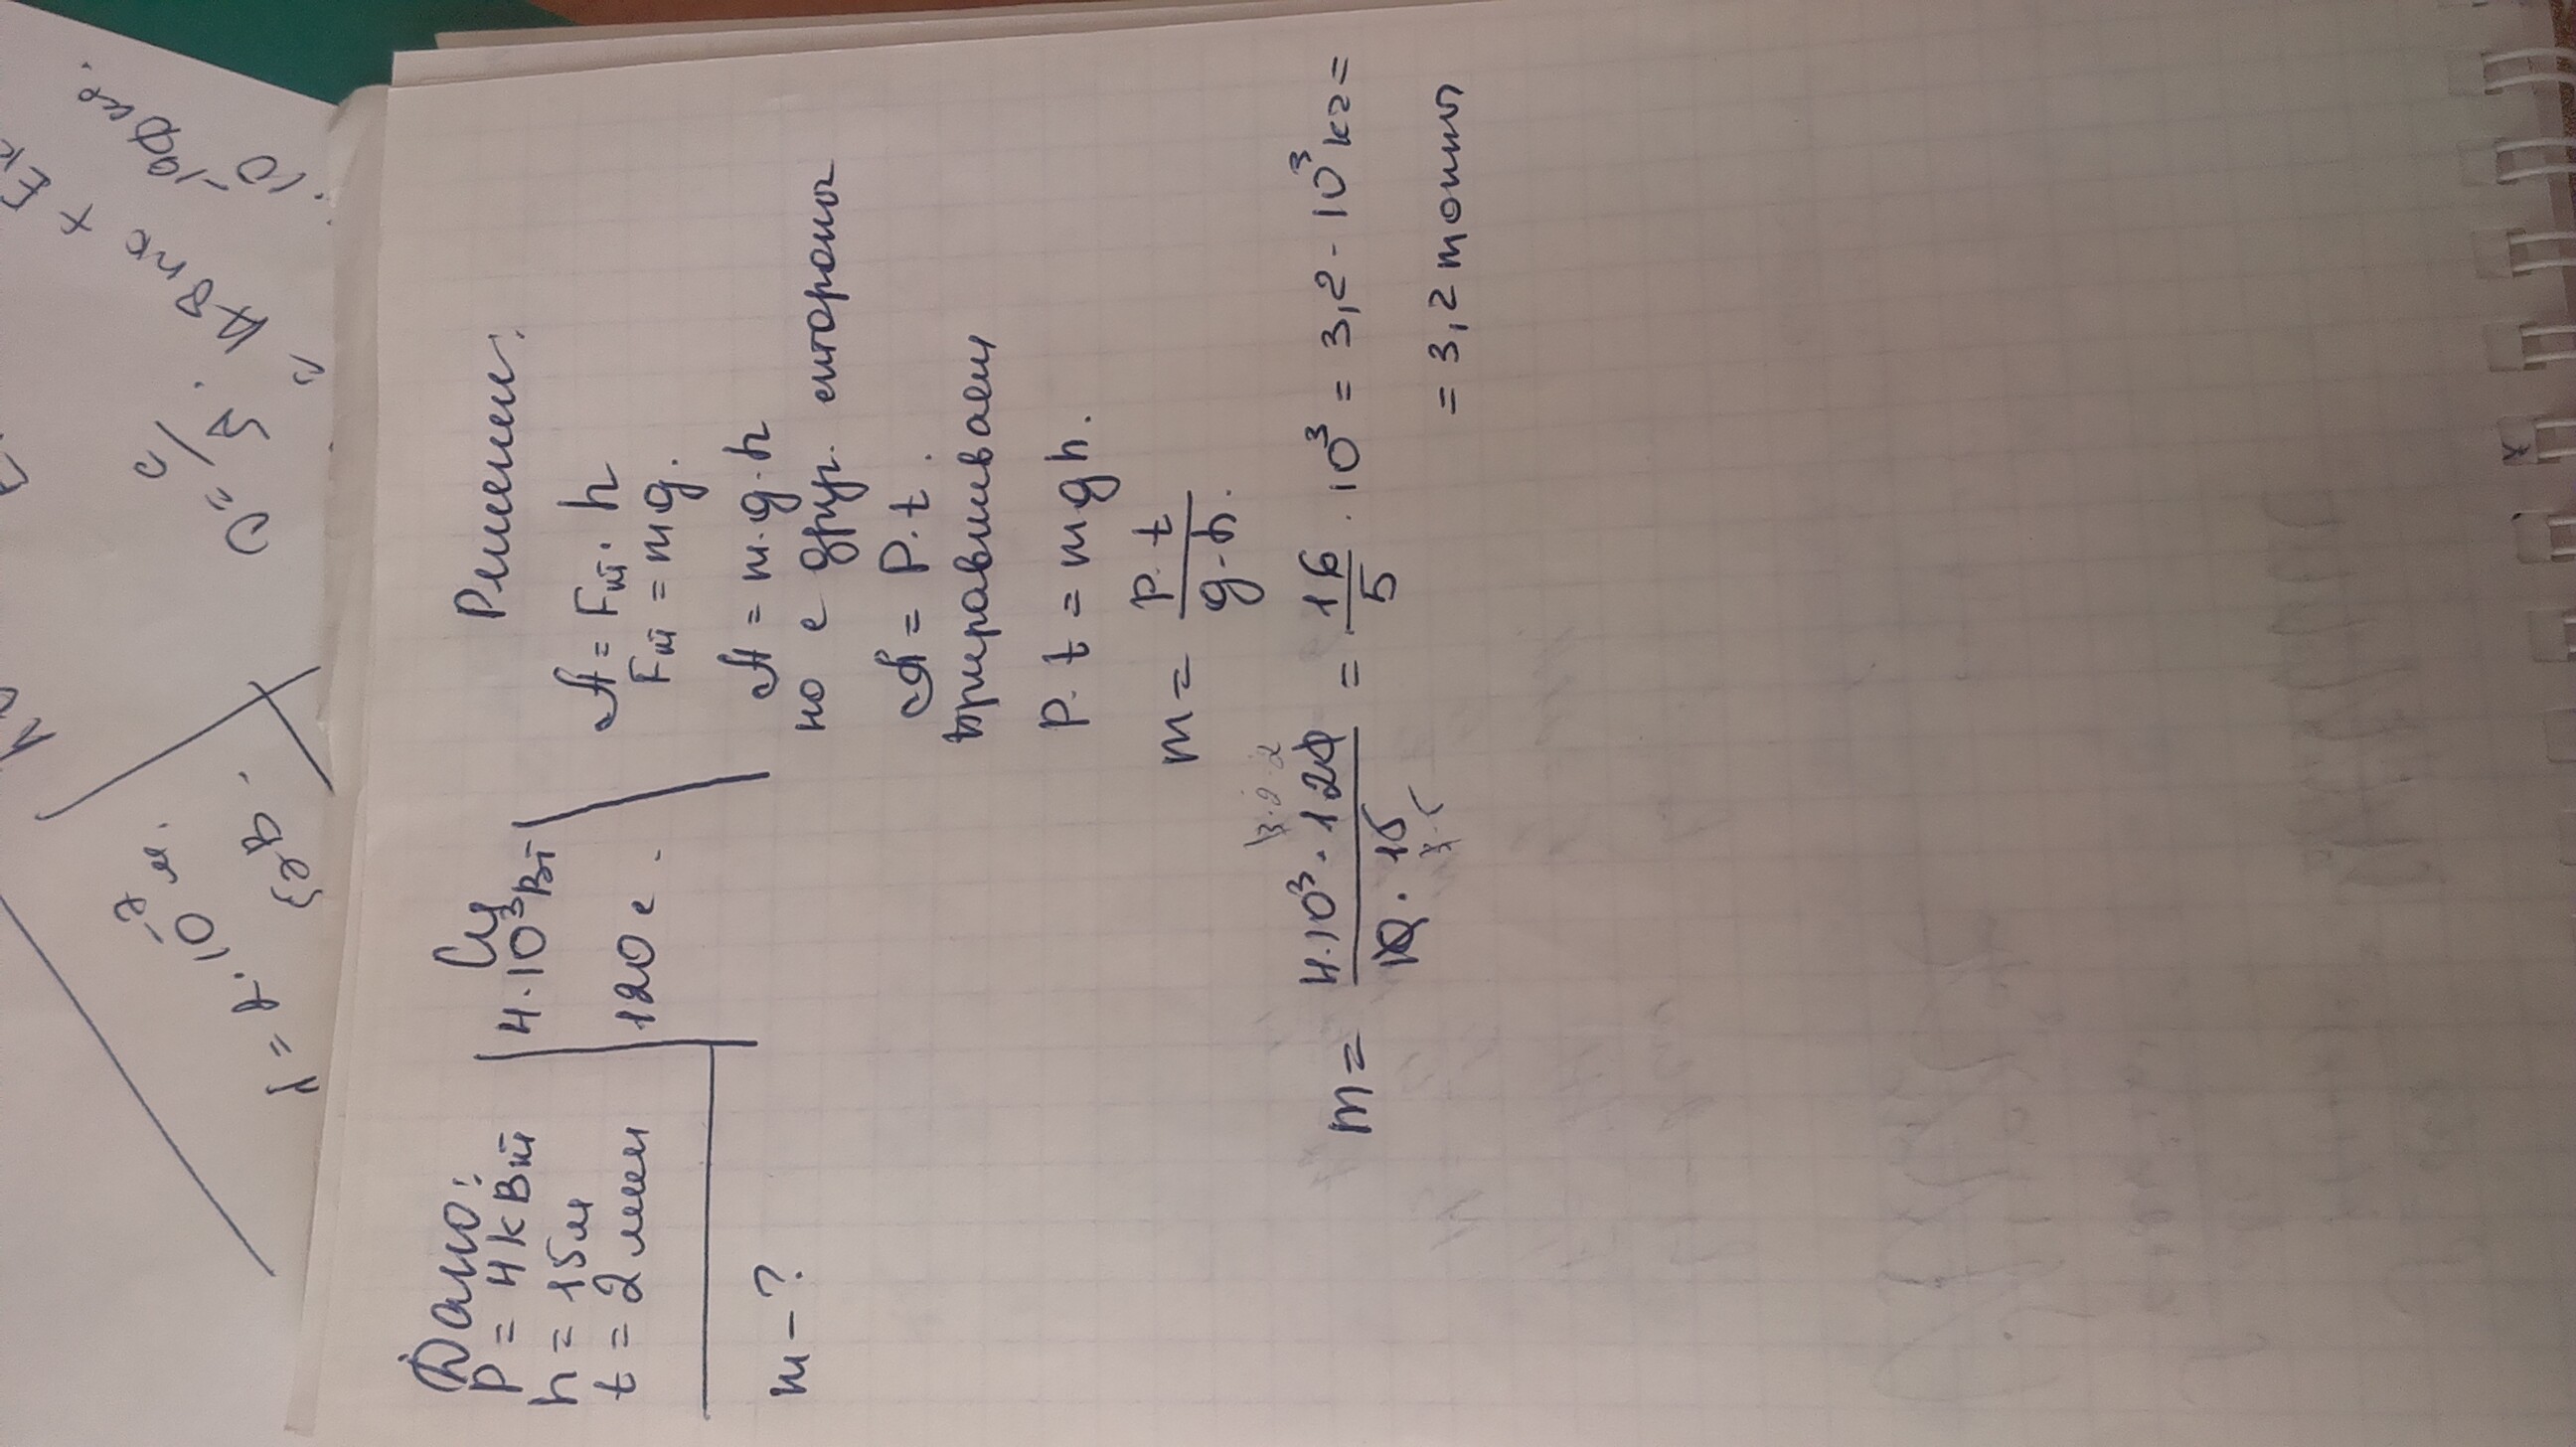 Дано:
P = 4 кВт
h = 15 м
t = 2 мин
m - ?
СИ
4·10³ Вт
120 с.
Решение:
A = Fт · h
Fт = mg.
A = m·g·h
но с друг. стороны
A = P·t.
приравниваем
P·t = mgh.
m = P·t / g·h.
3·2·2
m = 4·10³·120 / 10·15 = 16/5 · 10³ = 3,2 · 10³ кг =
= 3,2 тонны